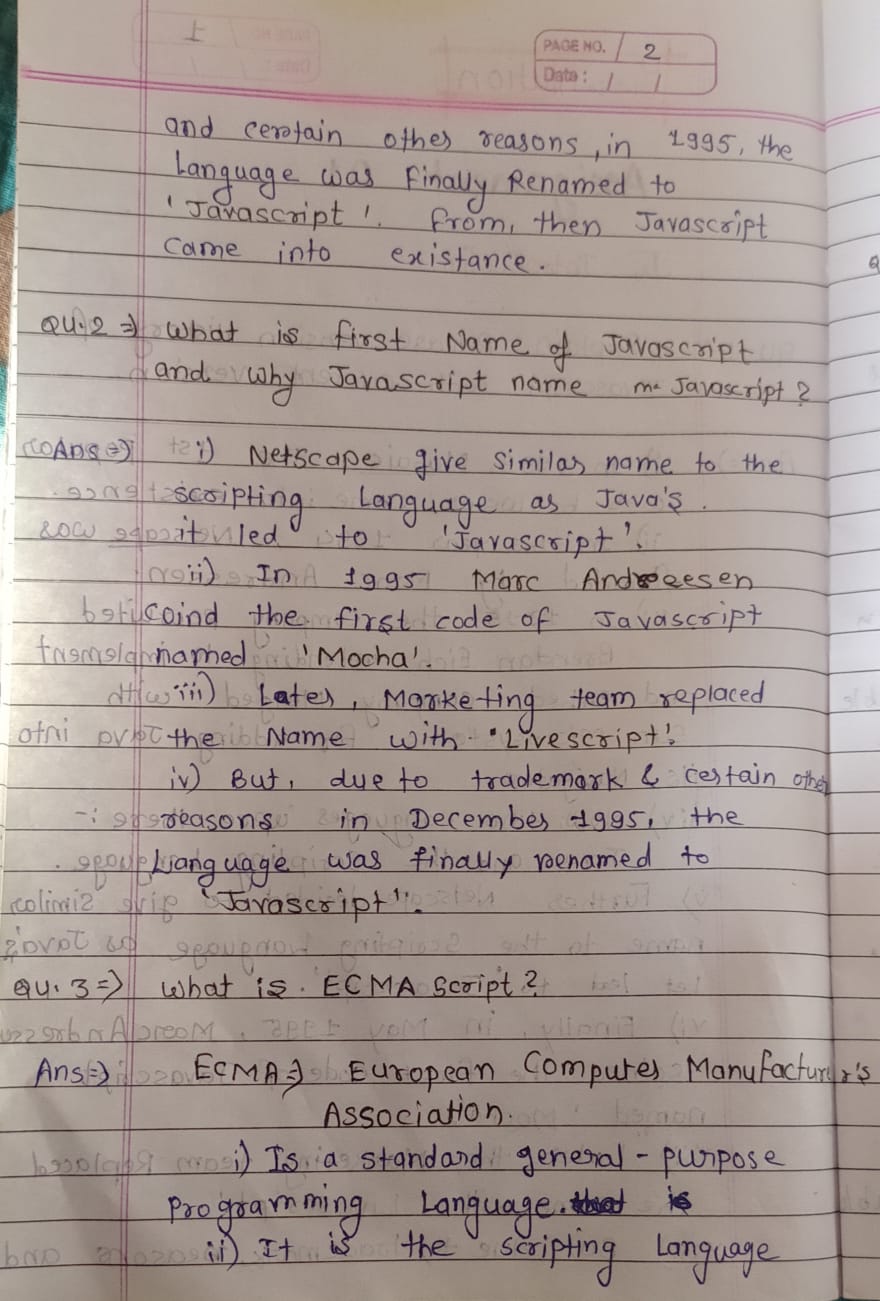 PAGE NO. 2
Date: / /
and certain other reasons, in 1995, the
Language was Finally Renamed to
'Javascript'. From, then Javascript
Came into existance.
QU.2 => What is first Name of Javascript
and why Javascript name Javascript?
Ans => i) Netscape give similar name to the
scripting Language as Java's.
it led to 'Javascript'.
ii) In 1995 Marc Andreesen
coind the first code of Javascript
named 'Mocha'.
iii) Later, Marketing team replaced
the Name with 'Livescript'.
iv) But, due to trademark & certain other
reasons in December 1995, the
Language was finally renamed to
'Javascript'.
QU. 3 => What is ECMA Script?
Ans => ECMA => European Computer Manufacturer's
Association.
i) Is a standard general-purpose
programming Language.
ii) It is the scripting Language